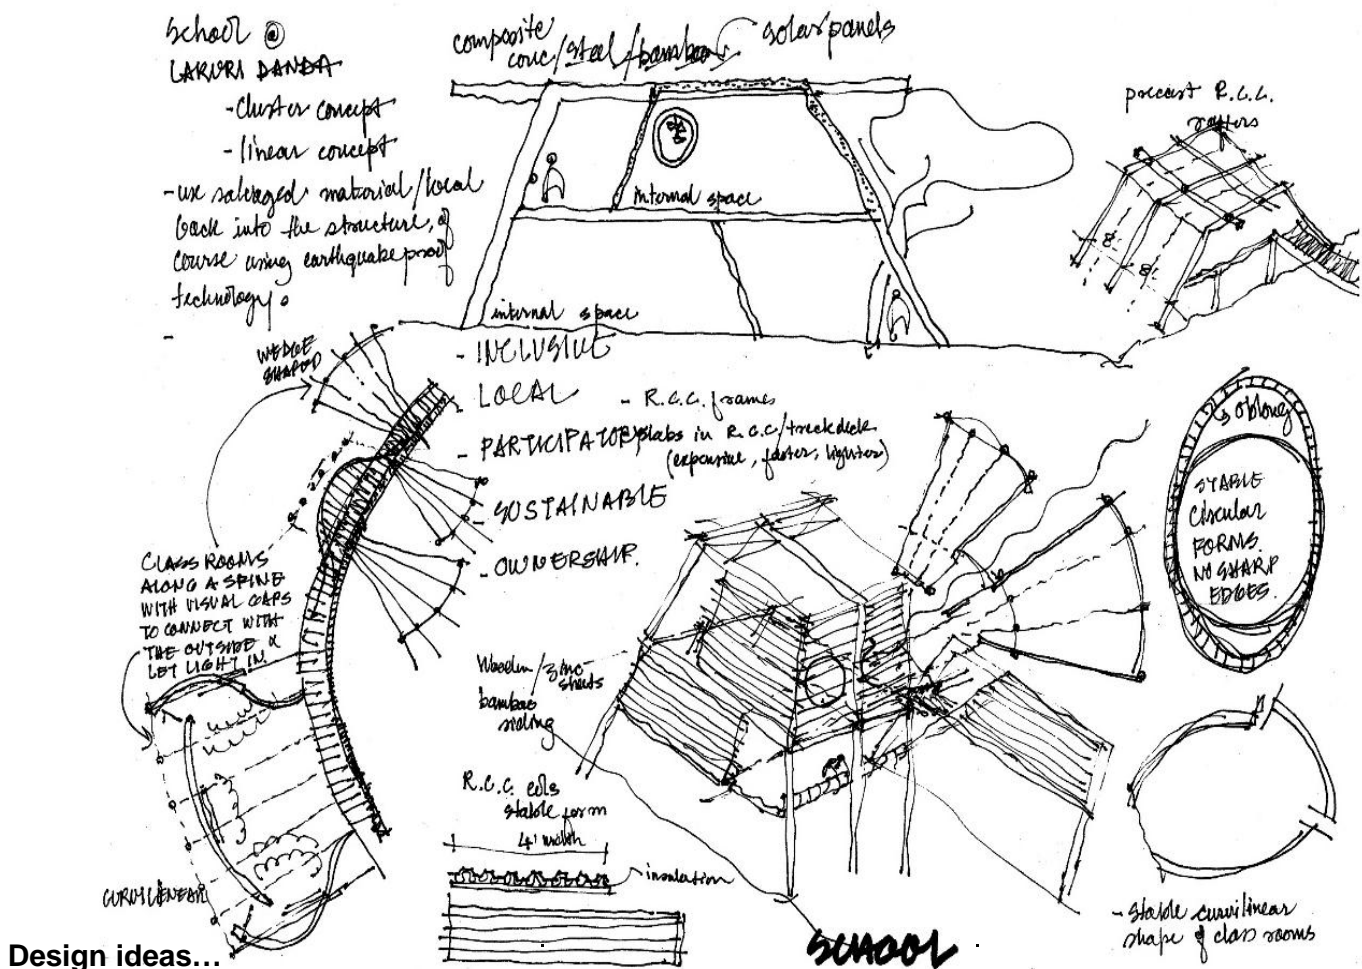 School @
LAKURI DANDA
- cluster concept
- linear concept
- use salvaged material/local
back into the structure, of
course using earthquake proof
technology.
-
composite
conc/steel/bamboo
solar panels
internal space
internal space
precast R.C.C.
rafters
8'
8'
WEDGE
SHAPED
- INCLUSIVE
- LOCAL
- PARTICIPATORY
- SUSTAINABLE
- OWNERSHIP.
- R.C.C. frames
slabs in R.C.C/truckdeck
(expensive, faster, lighter)
oblong
STABLE
Circular
FORMS.
NO SHARP
EDGES.
CLASS ROOMS
ALONG A SPINE
WITH VISUAL GAPS
TO CONNECT WITH
THE OUTSIDE &
LET LIGHT IN.
CURVILINEAR
Wooden/zinc
sheets
bamboo
siding
R.C.C. cols
stable form
4' width
insulation
SCHOOL
- Stable curvilinear
shape of class rooms
Design ideas...